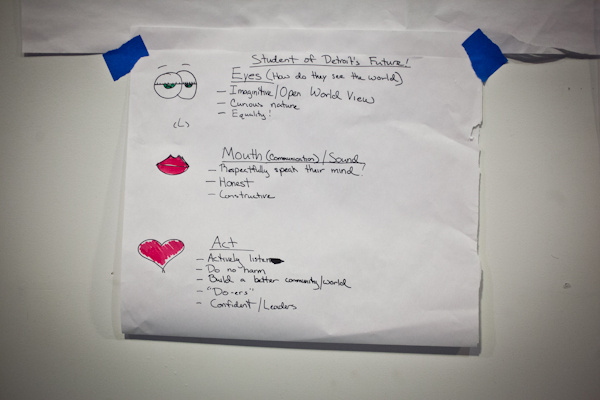 Student of Detroit's Future!
Eyes (How do they see the world)
- Imaginitive/Open World View
- Curious nature
- Equality!
Mouth (Communication) / Sound
- Respectfully speak their mind!
- Honest
- Constructive
Act
- Actively listen
- Do no harm
- Build a better community/world
- "Do-ers"
- Confident/Leaders